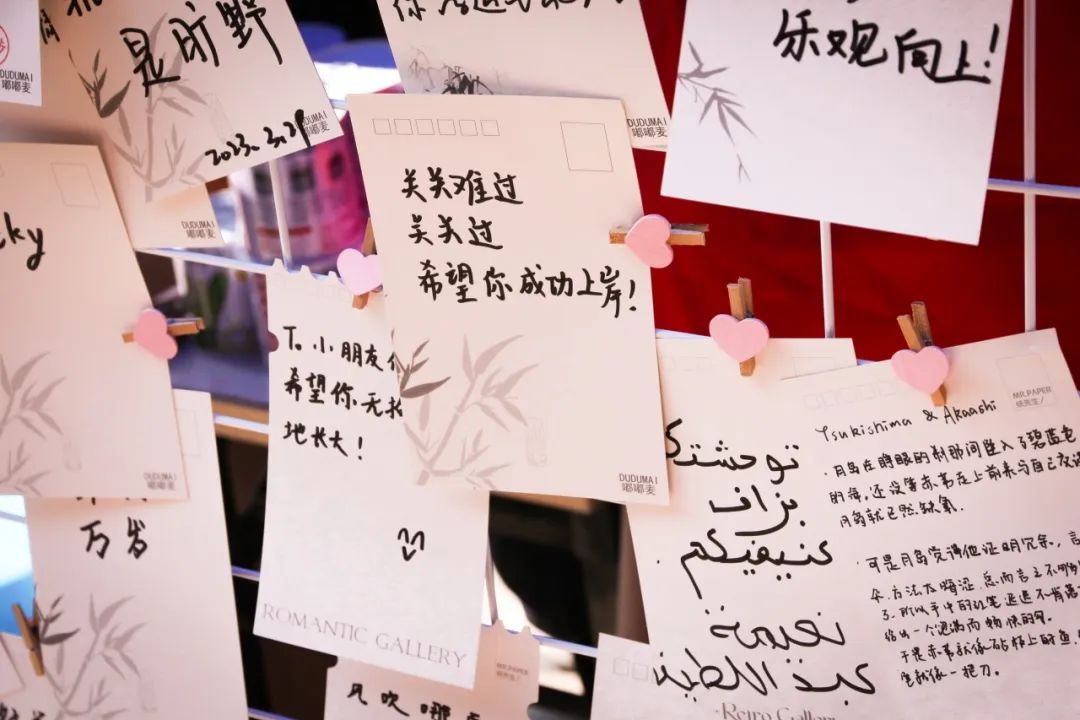 是旷野
2023.3.29
DUDUMAI
嘟嘟麦
DUDUMAI
嘟嘟麦
DUDUMAI
嘟嘟麦
乐观向上!
关关难过
关关过
希望你成功上岸!
DUDUMAI
嘟嘟麦
DUDUMAI
嘟嘟麦
DUDUMAI
嘟嘟麦
To 小朋友
希望你无
地长大!
ROMANTIC GALLERY
万岁
توحشتك
بزاف
كنبغيكم
نعيمة
عبد اللطيف
Retro Gallery
MR.PAPER
Tsukishima & Akaashi
月岛在睁眼的刹那间坠入了碧蓝色
的海,还没等赤苇走上前来与自己
月岛就已然缺氧.
可是月岛觉得他证明冗余,言
方法太晦涩.总而言之不够
了.所以手中的纸笔迟迟不肯
给出一个饱满而畅快的
于是赤苇就像砧板上的鱼.
就像一把刀.
MR.PAPER
风吹哪